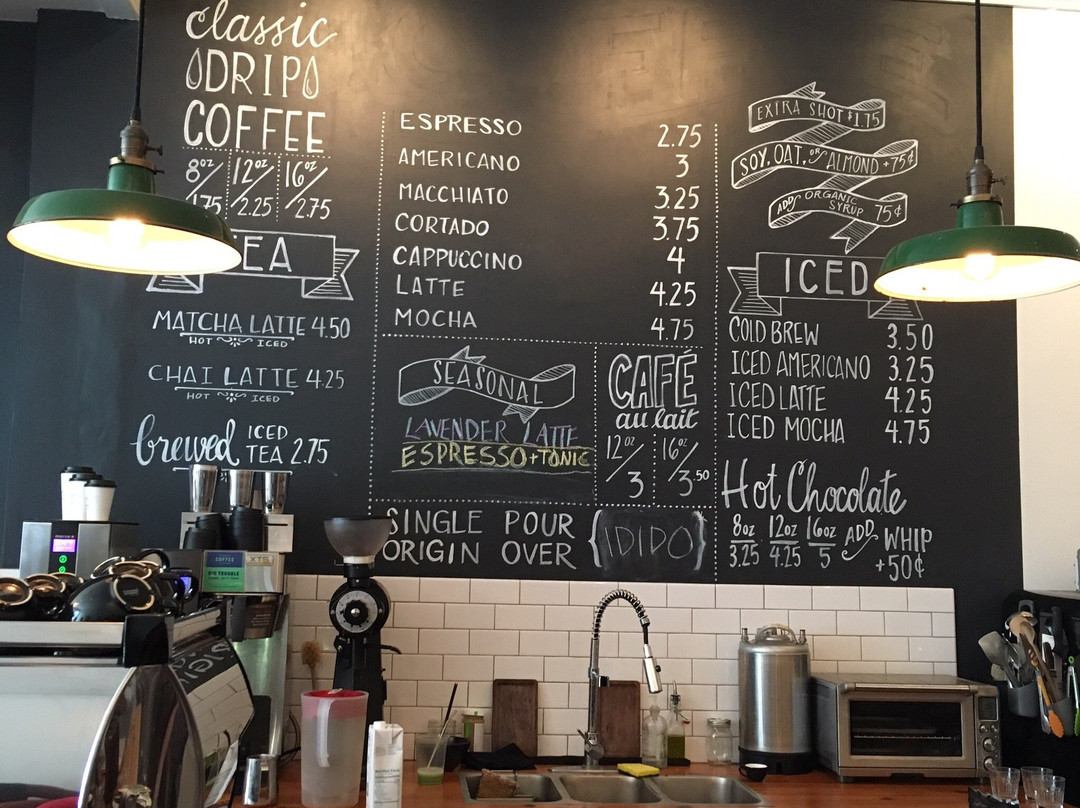 classic
DRIP
COFFEE
8oz 12oz 16oz
1.75 2.25 2.75
TEA
MATCHA LATTE 4.50
HOT ICED
CHAI LATTE 4.25
HOT ICED
brewed ICED TEA 2.75
ESPRESSO 2.75
AMERICANO 3
MACCHIATO 3.25
CORTADO 3.75
CAPPUCCINO 4
LATTE 4.25
MOCHA 4.75
SEASONAL
LAVENDER LATTE
ESPRESSO + TONIC
CAFÉ
au lait
12oz 16oz
3 3.50
SINGLE POUR
ORIGIN OVER
{IDIDO}
EXTRA SHOT $1.75
SOY, OAT, OR ALMOND + 75¢
ADD ORGANIC SYRUP 75¢
ICED
COLD BREW 3.50
ICED AMERICANO 3.25
ICED LATTE 4.25
ICED MOCHA 4.75
Hot Chocolate
8oz 12oz 16oz ADD WHIP
3.25 4.25 5 +50¢